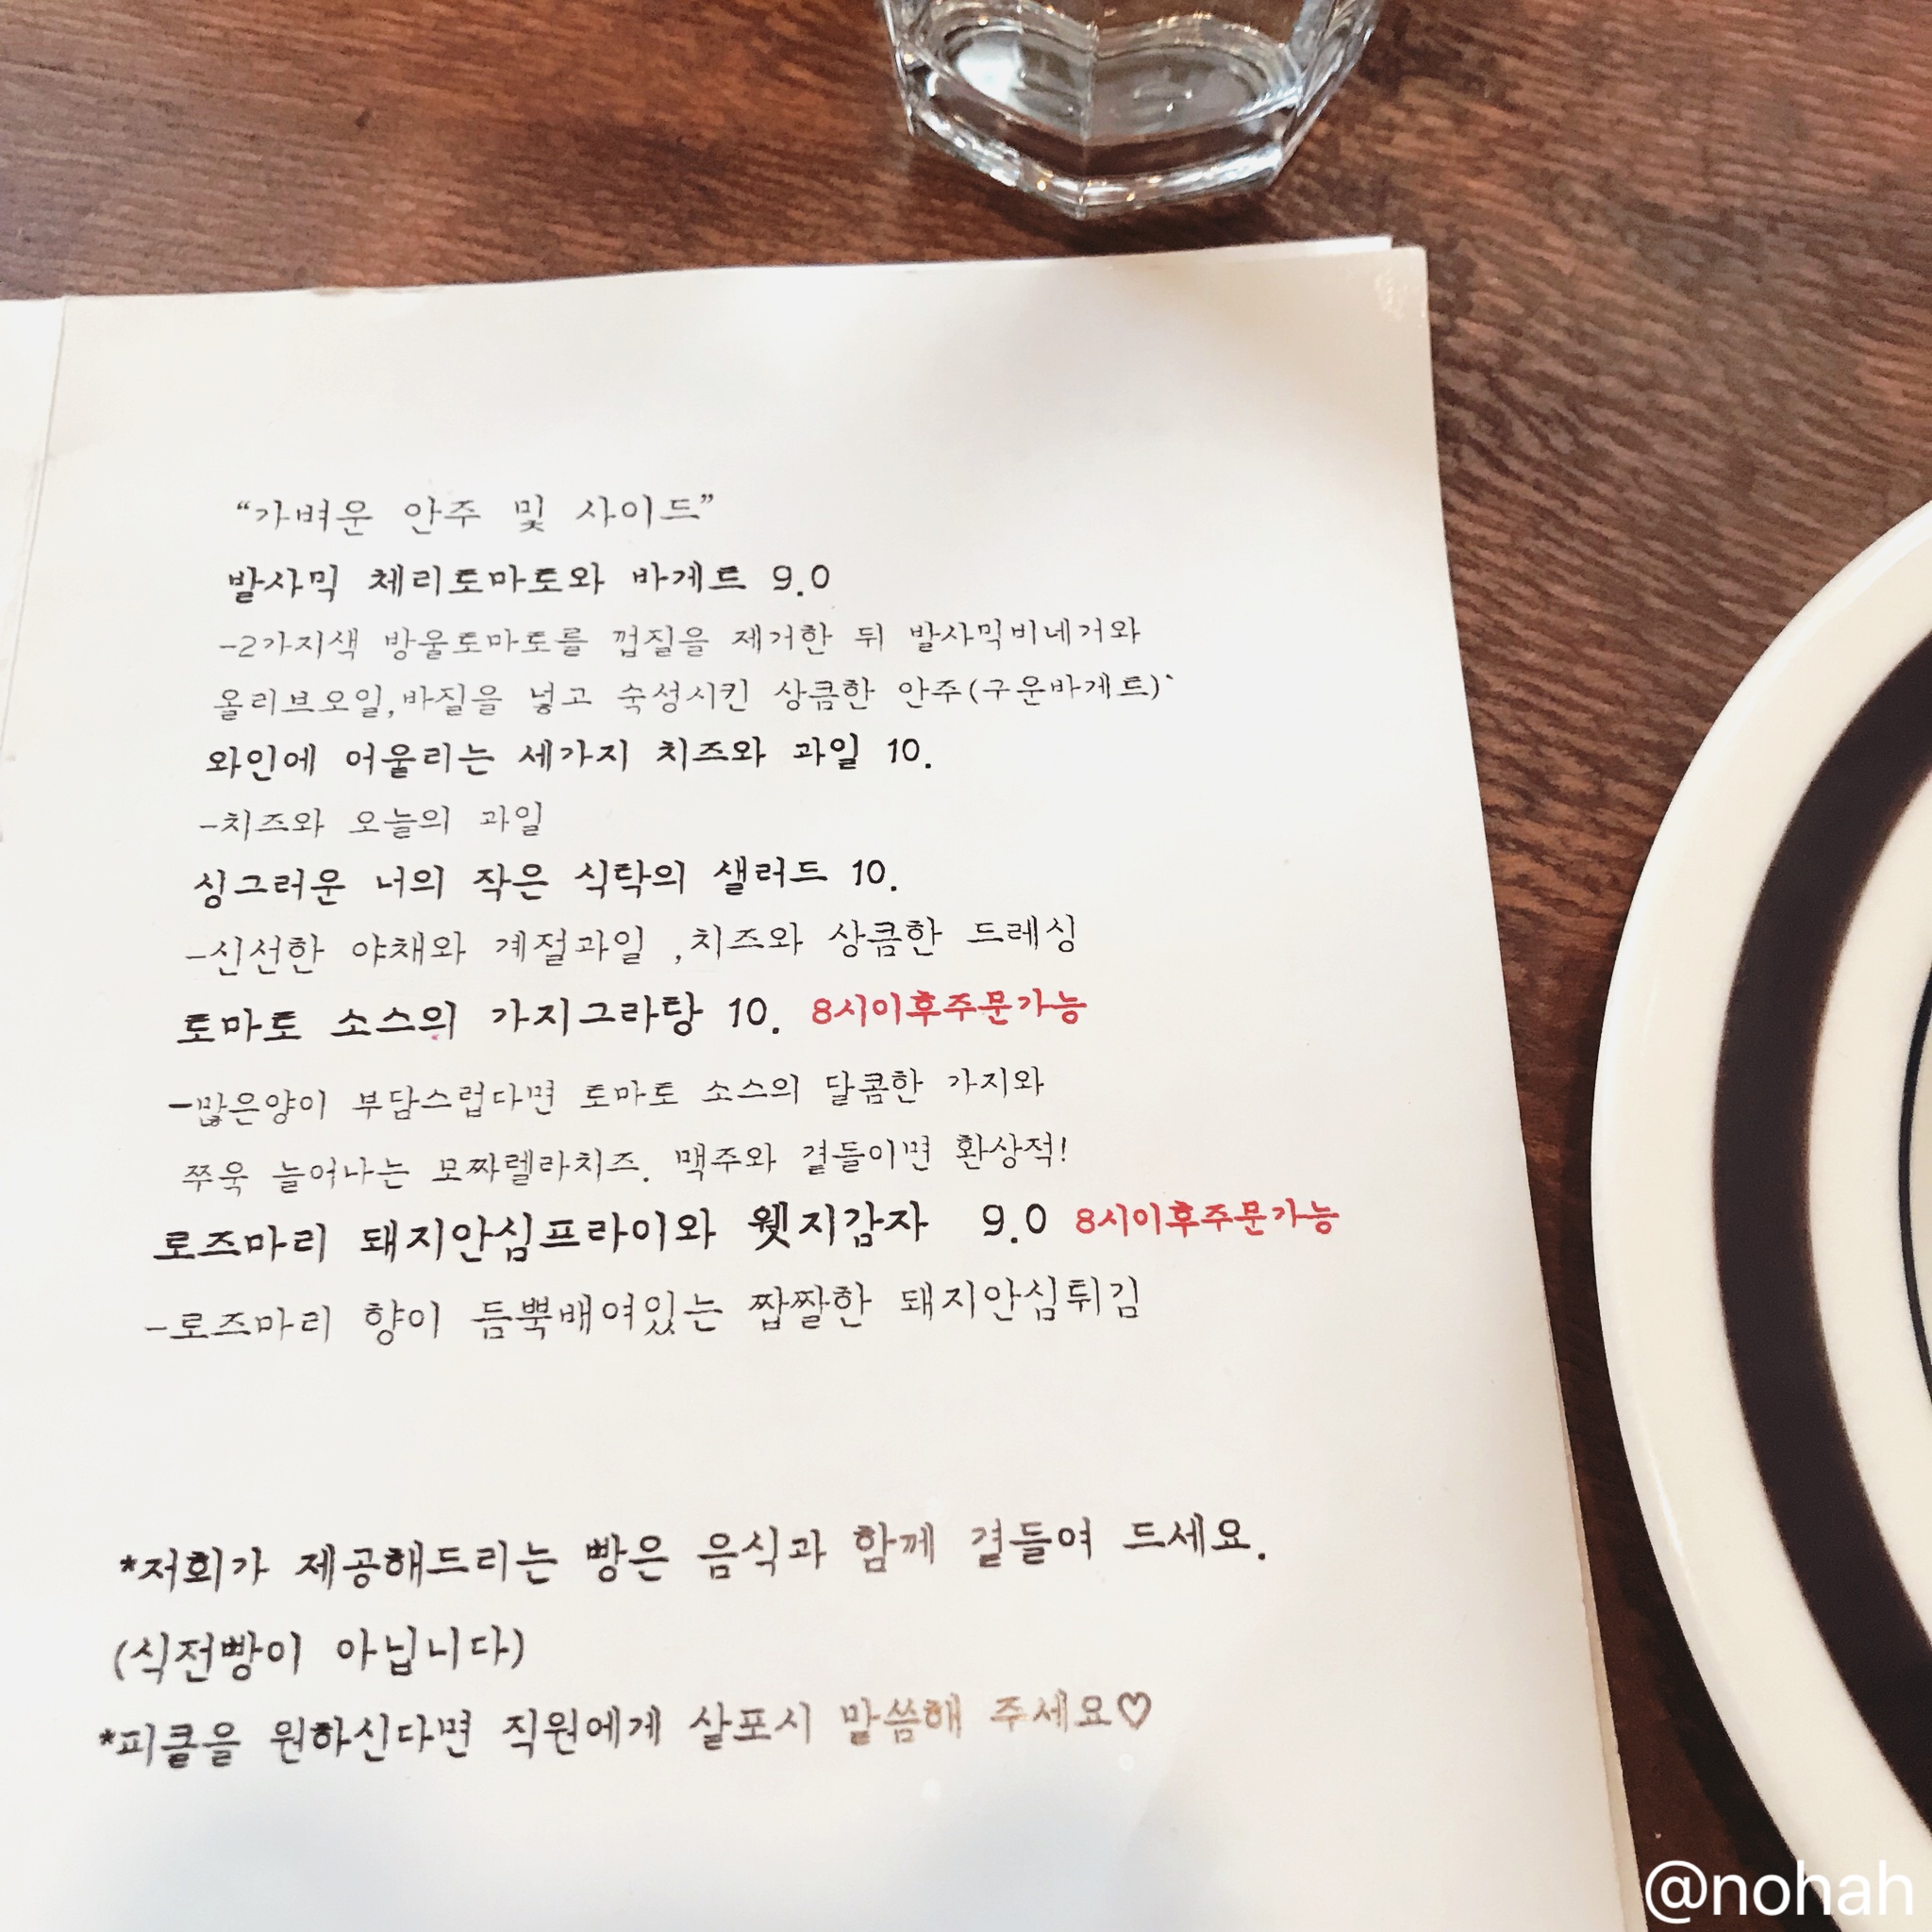 “가벼운 안주 및 사이드”
발사믹 체리토마토와 바게트 9.0
-2가지색 방울토마토를 껍질을 제거한 뒤 발사믹비네거와
올리브오일,바질을 넣고 숙성시킨 상큼한 안주(구운바게트)`
와인에 어울리는 세가지 치즈와 과일 10.
-치즈와 오늘의 과일
싱그러운 너의 작은 식탁의 샐러드 10.
-신선한 야채와 계절과일 ,치즈와 상큼한 드레싱
토마토 소스의 가지그라탕 10. 8시이후주문가능
-많은양이 부담스럽다면 토마토 소스의 달콤한 가지와
쭈욱 늘어나는 모짜렐라치즈. 맥주와 곁들이면 환상적!
로즈마리 돼지안심프라이와 웻지감자 9.0 8시이후주문가능
-로즈마리 향이 듬뿍배여있는 짭짤한 돼지안심튀김
*저희가 제공해드리는 빵은 음식과 함께 곁들여 드세요.
(식전빵이 아닙니다)
*피클을 원하신다면 직원에게 살포시 말씀해 주세요♡
@nohah